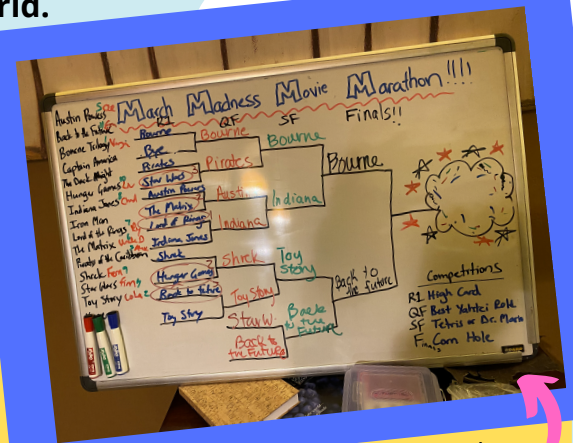 rld.
March Madness Movie Marathon!!!!
R1 QF SF Finals!!
Austin Powers
Back to the Future
Bourne Trilogy
Captain America
The Dark Knight
Hunger Games
Indiana Jones
Iron Man
Lord of the Rings
The Matrix
Pirates of the Caribbean
Shrek Fern
Star Wars Finn
Toy Story
Bourne
Bye
Pirates
Star Wars
Austin Powers
The Matrix
Lord of Rings
Indiana Jones
Shrek
Hunger Games
Back to future
Toy Story
Bourne
Pirates
Austi.
Indiana
Shrek
Toy Story
Star W.
Back to
the Future
Bourne
Indiana
Toy
Story
Back
to the
Future
Bourne
Back to
the future
Competitions
R1 High Card
QF Best Yahtzi Roll
SF Tetris or Dr. Mario
Finals Corn Hole